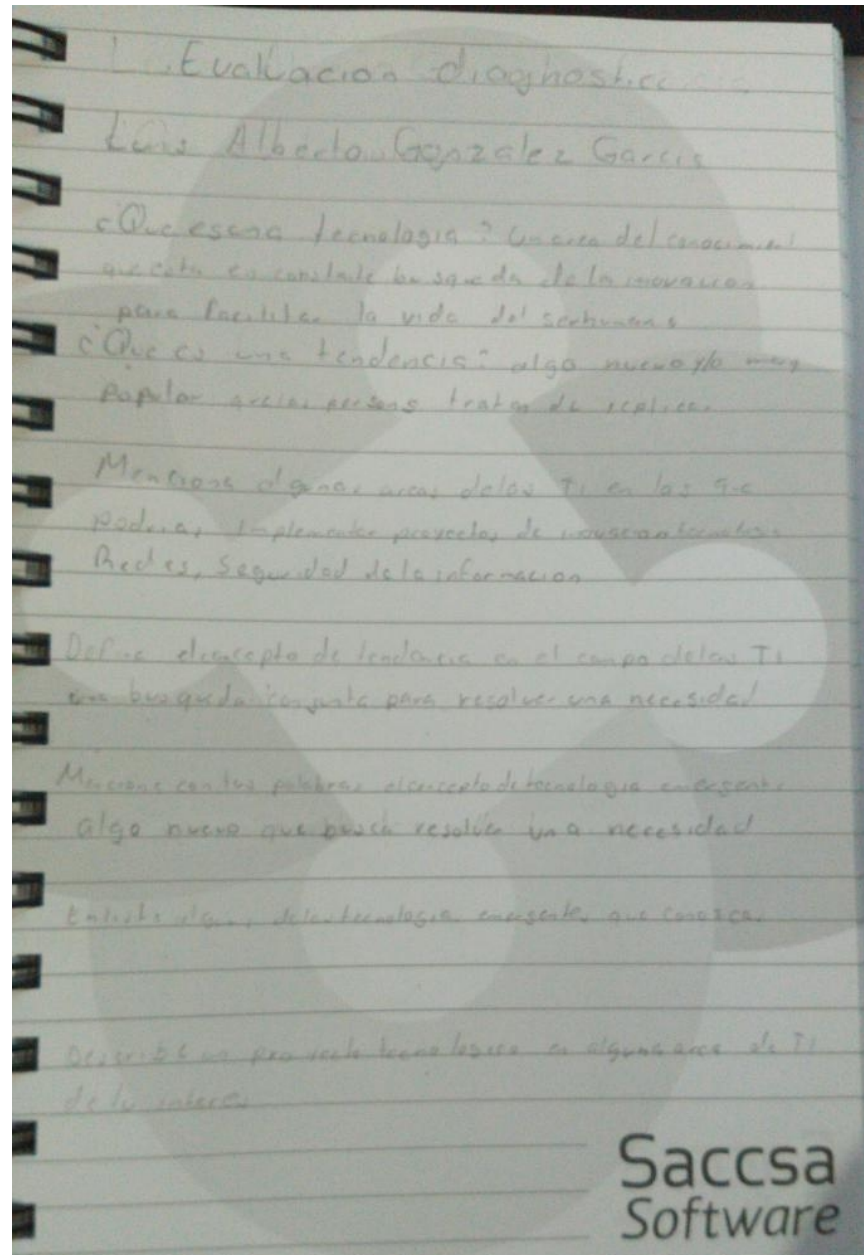 Evaluacion diagnostica
Luis Alberto Gonzalez Garcia
¿Que es una tecnologia? Un area del conocimient
que esta en constante busqueda de la inovacion
para facilitar la vida del ser humano
¿Que es una tendencia? algo nuevo y/o muy
Popular que las persons tratan de replicar
Menciona algunas areas de las TI en las que
podrias implementar proyectos de inovacion tecnologica
Redes, Seguridad de la informacion
Define el concepto de tendencia en el campo de las TI
una busqueda conjunta para resolver una necesidad
Menciona con tus palabras el concepto de tecnologia emergente
algo nuevo que busca resolver una necesidad
Enlista algunas de las tecnologias emergentes que conozcas
Describe un proyecto tecnologico en alguna area de TI
de tu interes
Saccsa
Software